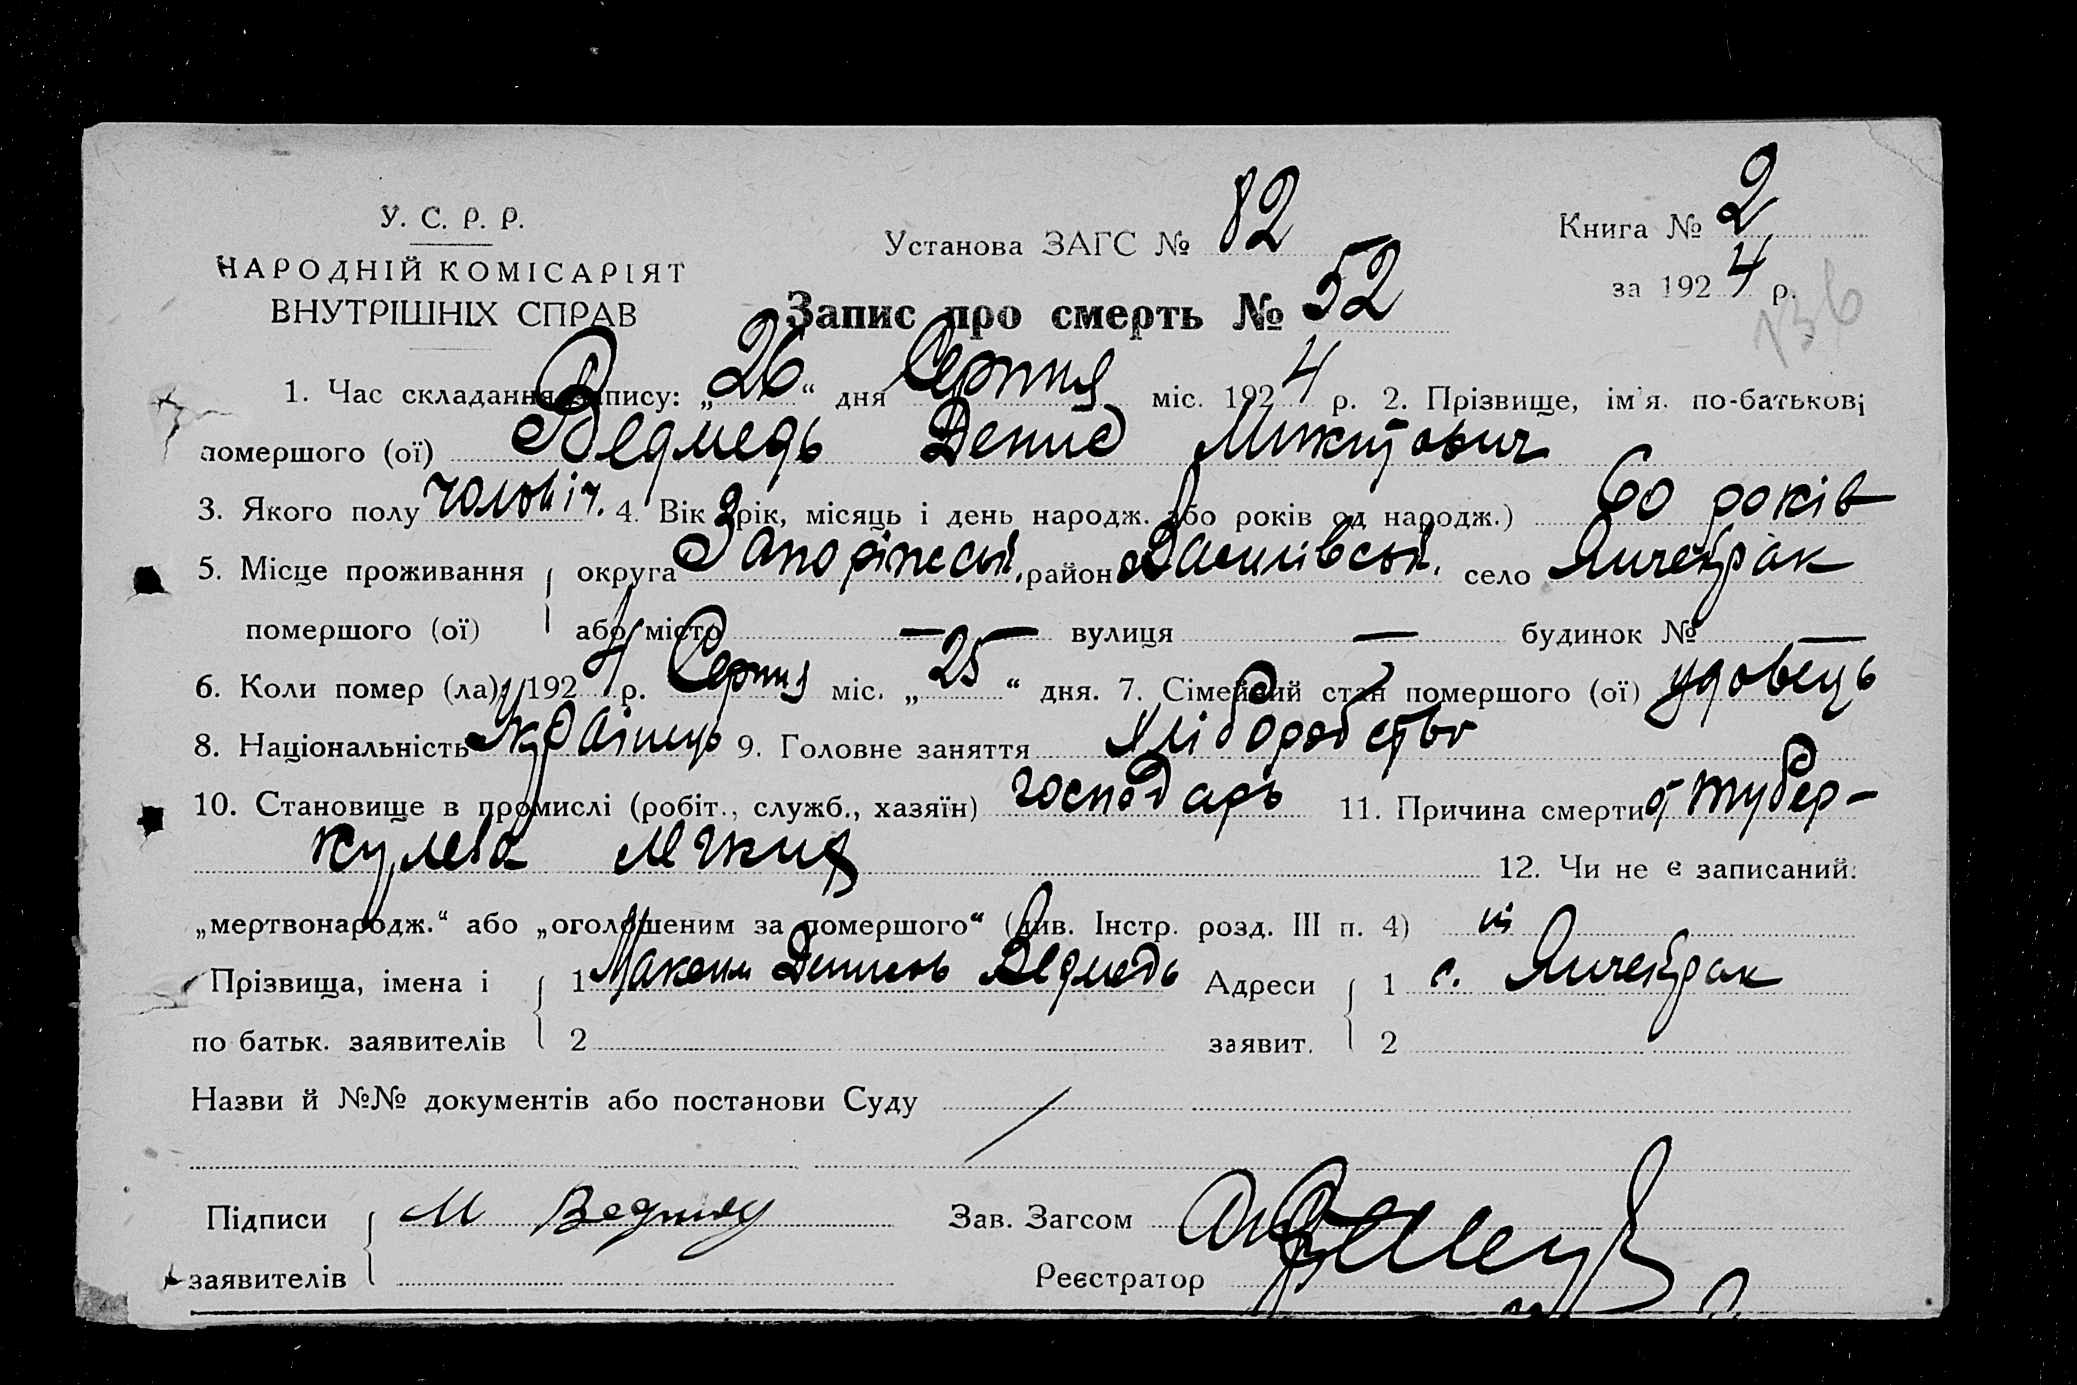 У. С. Р. Р.
НАРОДНІЙ КОМІСАРІЯТ
ВНУТРІШНІХ СПРАВ
Установа ЗАГС № 82
Книга № 2
за 1924 р.
136
Запис про смерть № 52
1. Час складання запису: „26“ дня Серпня міс. 1924 р. 2. Прізвище, ім'я. по-батькові
помершого (ої) Ведмедь Денис Микитович
3. Якого полу чоловіч. 4. Вік (рік, місяць і день народж. або років од народж.) 60 років
5. Місце проживання округа Запоріжськ. район Василівськ. село Янчекрак
помершого (ої) або місто — вулиця — будинок № —
6. Коли помер (ла) 1924 р. Серпня міс. „25“ дня. 7. Сімейний стан помершого (ої) удовець
8. Національність Українець 9. Головне заняття Хліборобство
10. Становище в промислі (робіт., служб., хазяїн) господарь 11. Причина смерти від тубер-
кульоза
12. Чи не є записаний:
„мертвонародж.“ або „оголошеним за помершого“ (див. Інстр. розд. III п. 4) ні
Прізвища, імена і 1 Максим Денисов Ведмедь Адреси 1 с. Янчекрак
по батьк. заявителів 2 заявит. 2
Назви й №№ документів або постанови Суду
Підписи М Ведмедь Зав. Загсом
заявителів Реєстратор